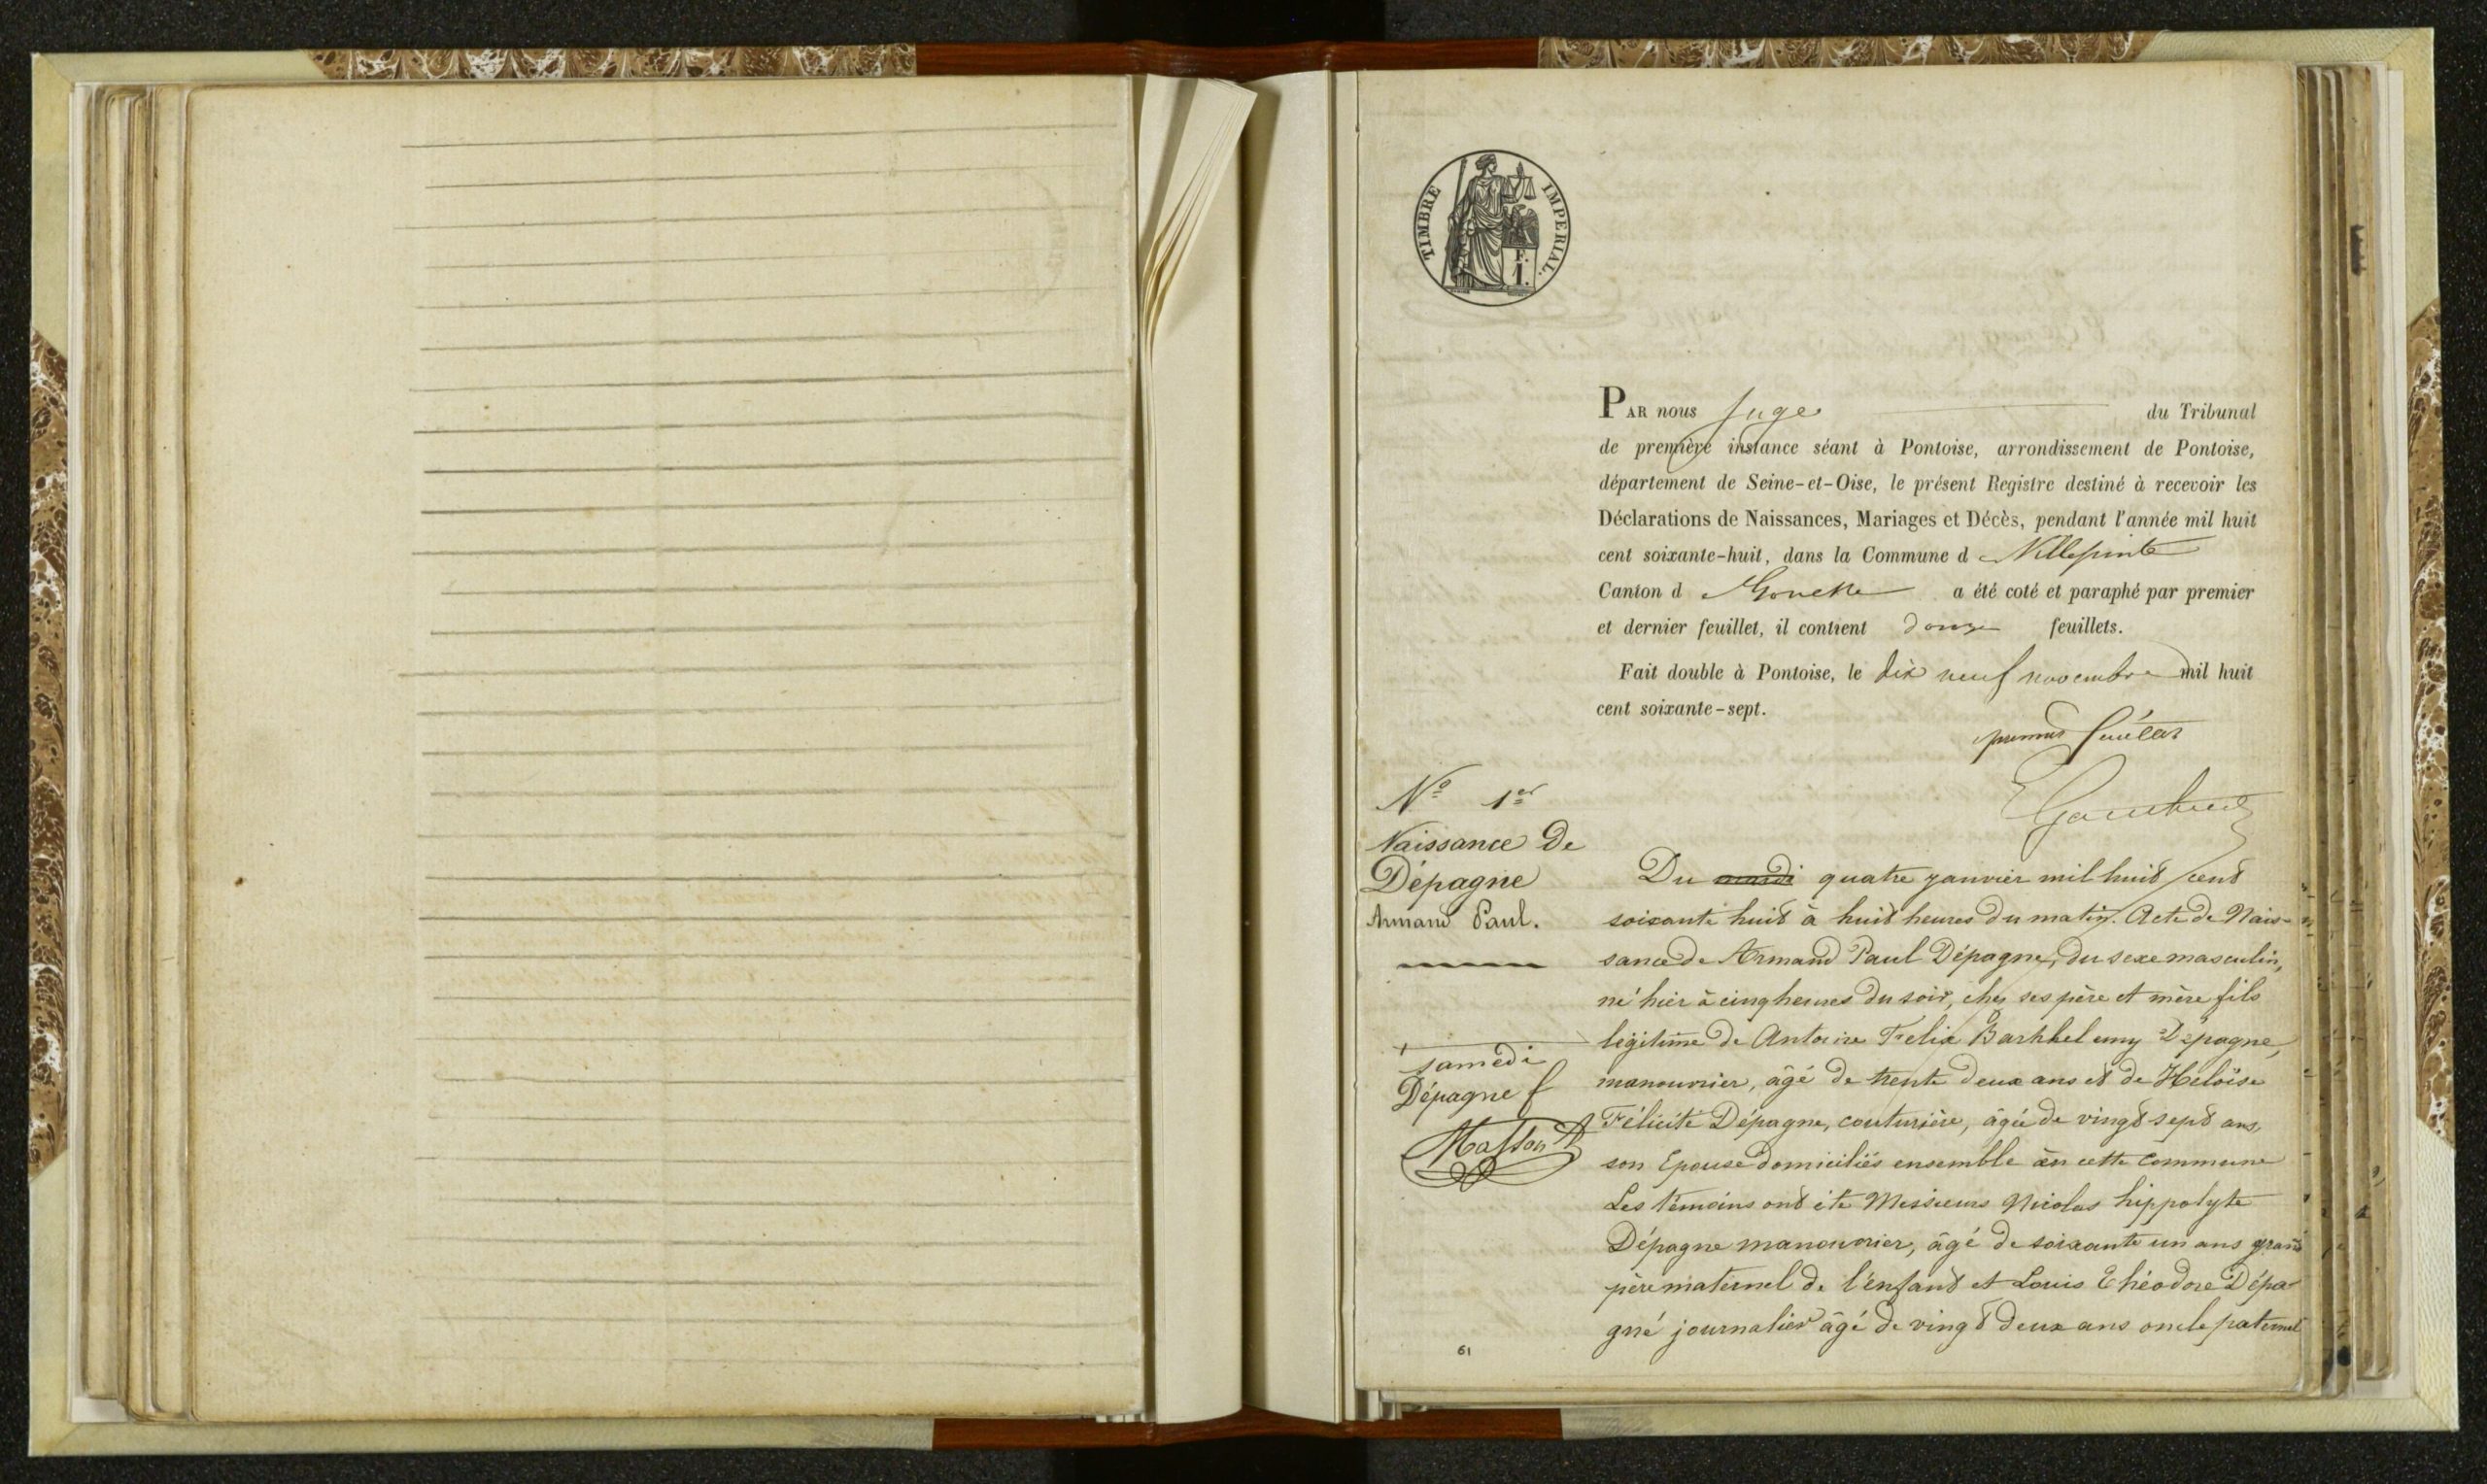 TIMBRE IMPERIAL.
F.
1.
PAR nous Juge du Tribunal
de première instance séant à Pontoise, arrondissement de Pontoise,
département de Seine-et-Oise, le présent Registre destiné à recevoir les
Déclarations de Naissances, Mariages et Décès, pendant l'année mil huit
cent soixante-huit, dans la Commune d Villepinte
Canton d Gonesse a été coté et paraphé par premier
et dernier feuillet, il contient douze feuillets.
Fait double à Pontoise, le dix neuf novembre mil huit
cent soixante-sept.
premier feuillet
Nº 1er
Naissance De
Dépagne
Armand Paul.
samedi
Dépagne f
Masson
Du mardi quatre janvier mil huit cent
soixante huit à huit heures du matin. Acte de Nais-
sance de Armand Paul Dépagne, du sexe masculin,
né hier à cinq heures du soir, chez ses père et mère fils
légitime de Antoine Felix Barthhelemy Dépagne,
manouvrier, âgé de trente deux ans et de Héloïse
Félicité Dépagne, couturière, âgée de vingt sept ans,
son Epouse domiciliés ensemble en cette commune
Les témoins ont éte Messieurs Nicolas hippolyte
Dépagne manouvrier, âgé de soixante un ans grand
père maternel de l'enfant et Louis Théodore Dépa-
gné journalier âgé de vingt deux ans oncle paternel
61